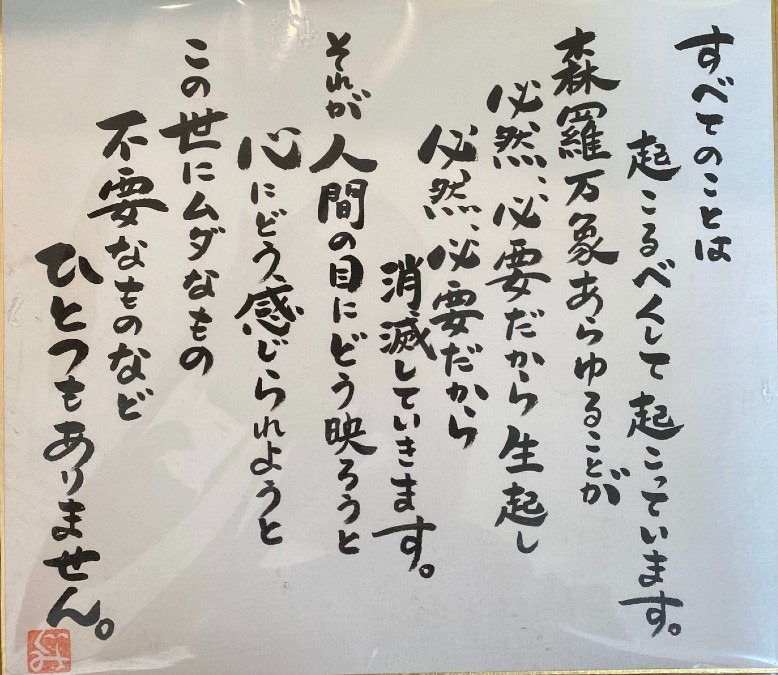 すべてのことは
起こるべくして起こっています。
森羅万象あらゆることが
必然、必要だから生起し
必然、必要だから
消滅していきます。
それが人間の目にどう映ろうと
心にどう感じられようと
この世にムダなもの
不要なものなど
ひとつもありません。